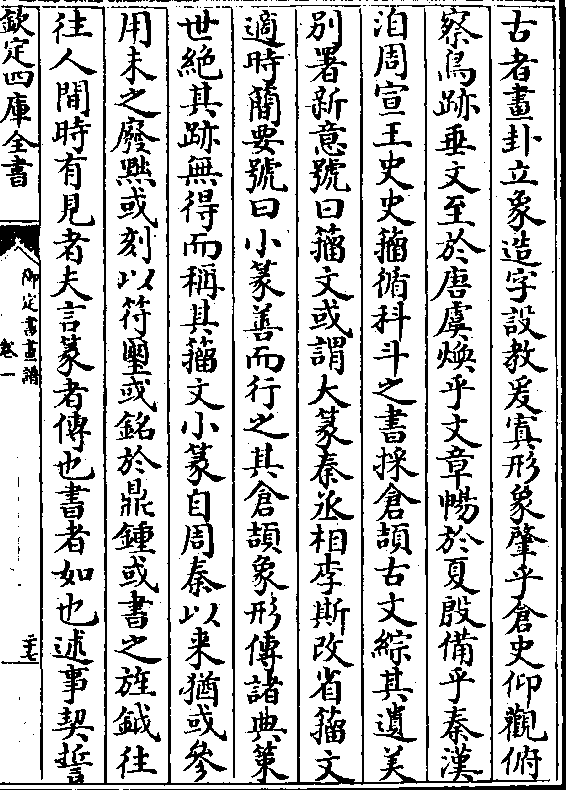 古者畫卦立象造字設教爰寘形象肇乎倉史仰觀俯
察鳥跡垂文至於唐虞煥乎文章暢於夏殷備乎秦漢
洎周宣王史史籒循科斗之書採倉頡古文綜其遺美
別署新意號曰籒文或謂大篆秦丞相李斯改省籒文
適時簡要號曰小篆善而行之其倉頡象形傳諸典策
世絶其跡無得而稱其籒文小篆自周秦以来猶或參
用未之廢黜或刻以符璽或銘於鼎鍾或書之旌鉞往
往人間時有見者夫言篆者傳也書者如也述事契誓
欽定四庫全書
御定書畫譜
卷一
二十七